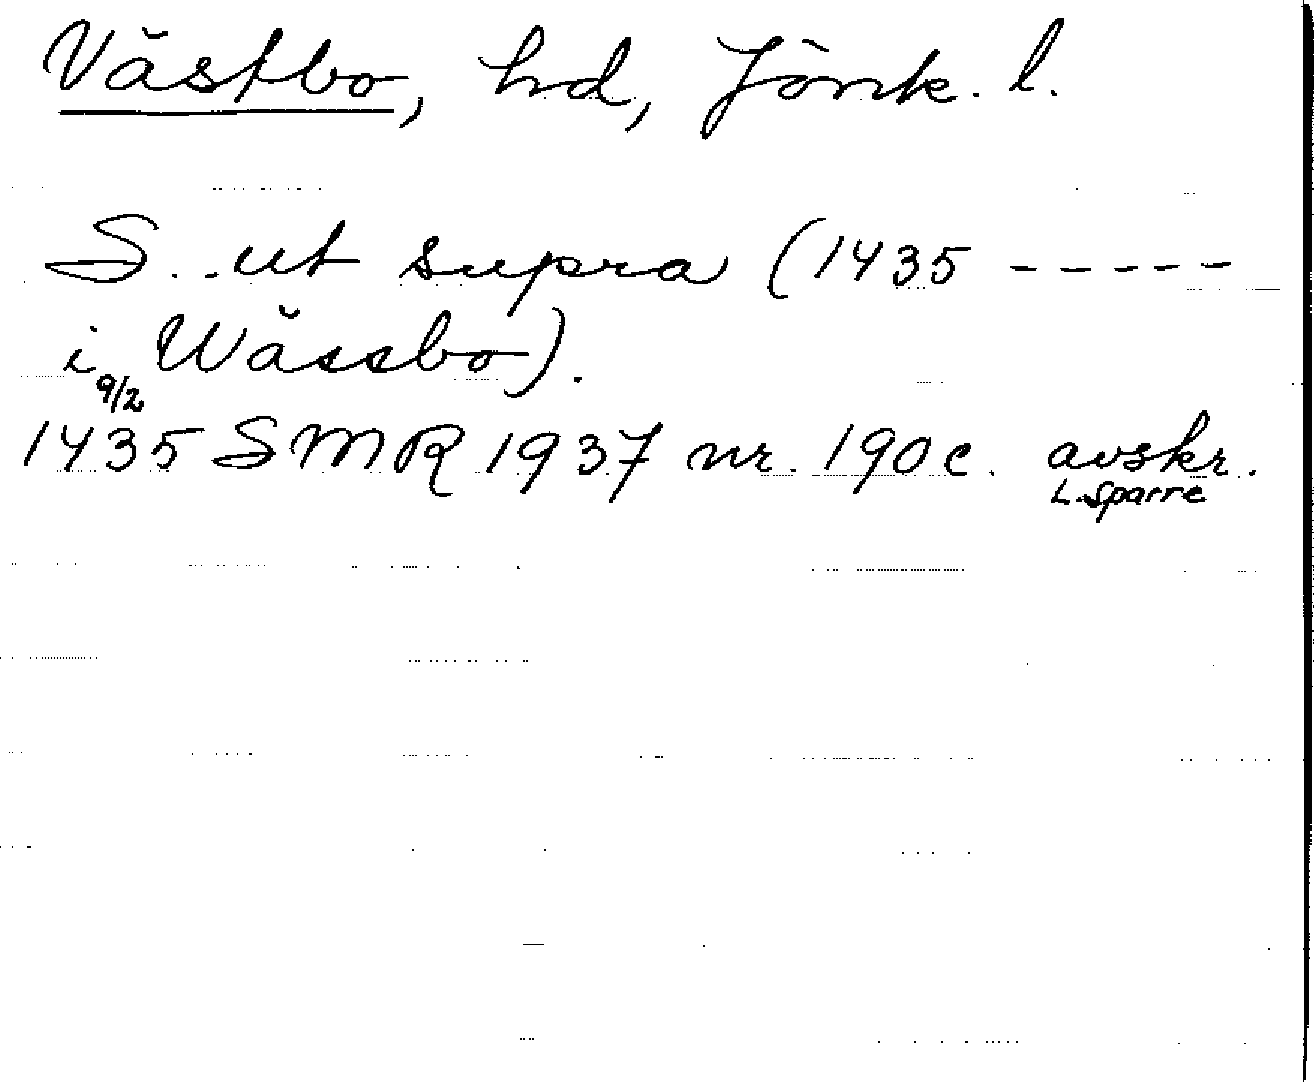 Västbo, hd, Jönk. l.
S. ut supra (1435 -----
i Wässbo).
9/2
1435 SMR 1937 nr. 190 c. avskr.
L. Sparre